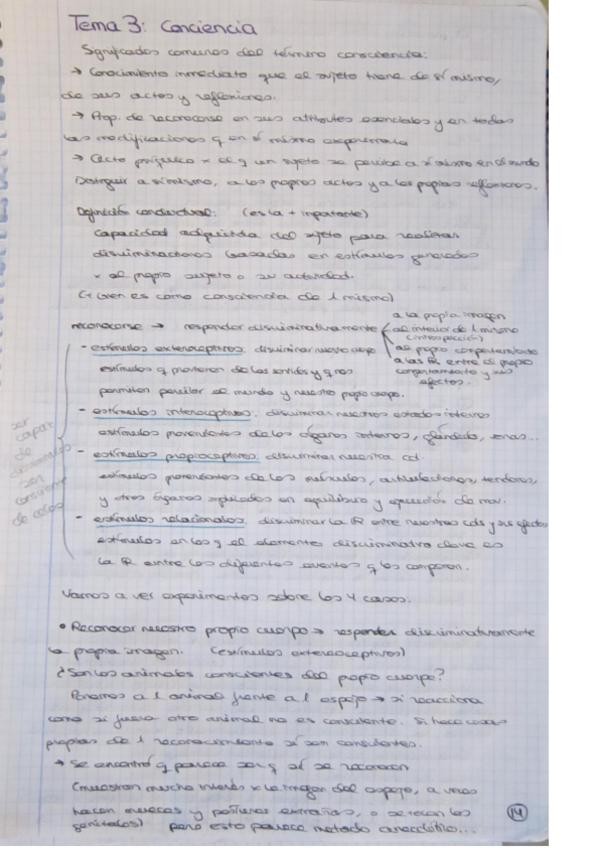 Tema 3: Conciencia
Significados comunes del término consciencia:
→ Conocimiento inmediato que el sujeto tiene de sí mismo,
de sus actos y reflexiones.
→ Prop. de reconocerse en sus atributos esenciales y en todas
las modificaciones q en sí mismo experimenta
→ Acto psíquico x el q un sujeto se percibe a sí mismo en el mundo
Distinguir a sí mismo, a los propios actos y a las propias reflexiones.
Definición conductual: (es la + importante)
Capacidad adquirida del sujeto para realizar
discriminaciones basadas en estímulos generados
x el propio sujeto o su actividad.
(+ bien es como consciencia de 1 mismo)
reconocerse → responder discriminativamente
a la propia imagen
al interior de 1 mismo
(introspección)
al propio comportamiento
a las R entre el propio
comportamiento y sus
efectos.
- estímulos exteroceptivos: discriminar nuestro cuerpo
estímulos q provienen de los sentidos y q nos
permiten percibir el mundo y nuestro propio cuerpo.
- estímulos interoceptivos: discriminar nuestros estados internos
estímulos provenientes de los órganos internos, glándulas, venas...
- estímulos propioceptivos: discriminar nuestra cd.
estímulos provenientes de los músculos, articulaciones, tendones,
y otros órganos implicados en equilibrio y ejecución de mov.
- estímulos relacionales: discriminar la R entre nuestras cds y sus efectos
estímulos en los q el elemento discriminativo clave es
la R entre los diferentes eventos q los componen.
ser
capaz
de
discriminarlos
=
ser
consciente
de ellos
Vamos a ver experimentos sobre los 4 casos.
• Reconocer nuestro propio cuerpo → responder discriminativamente
la propia imagen. (estímulos exteroceptivos)
¿Son los animales conscientes del propio cuerpo?
Ponemos a 1 animal frente a 1 espejo → si reacciona
como si fuera otro animal no es consciente. Si hace cosas
propias de 1 reconocimiento sí son conscientes.
→ Se encontró q parece ser q sí se reconocen
(muestran mucho interés x la imagen del espejo, a veces
hacen muecas y posturas extrañas, o se tocan los
genitales) pero esto parece método anecdótico...
14